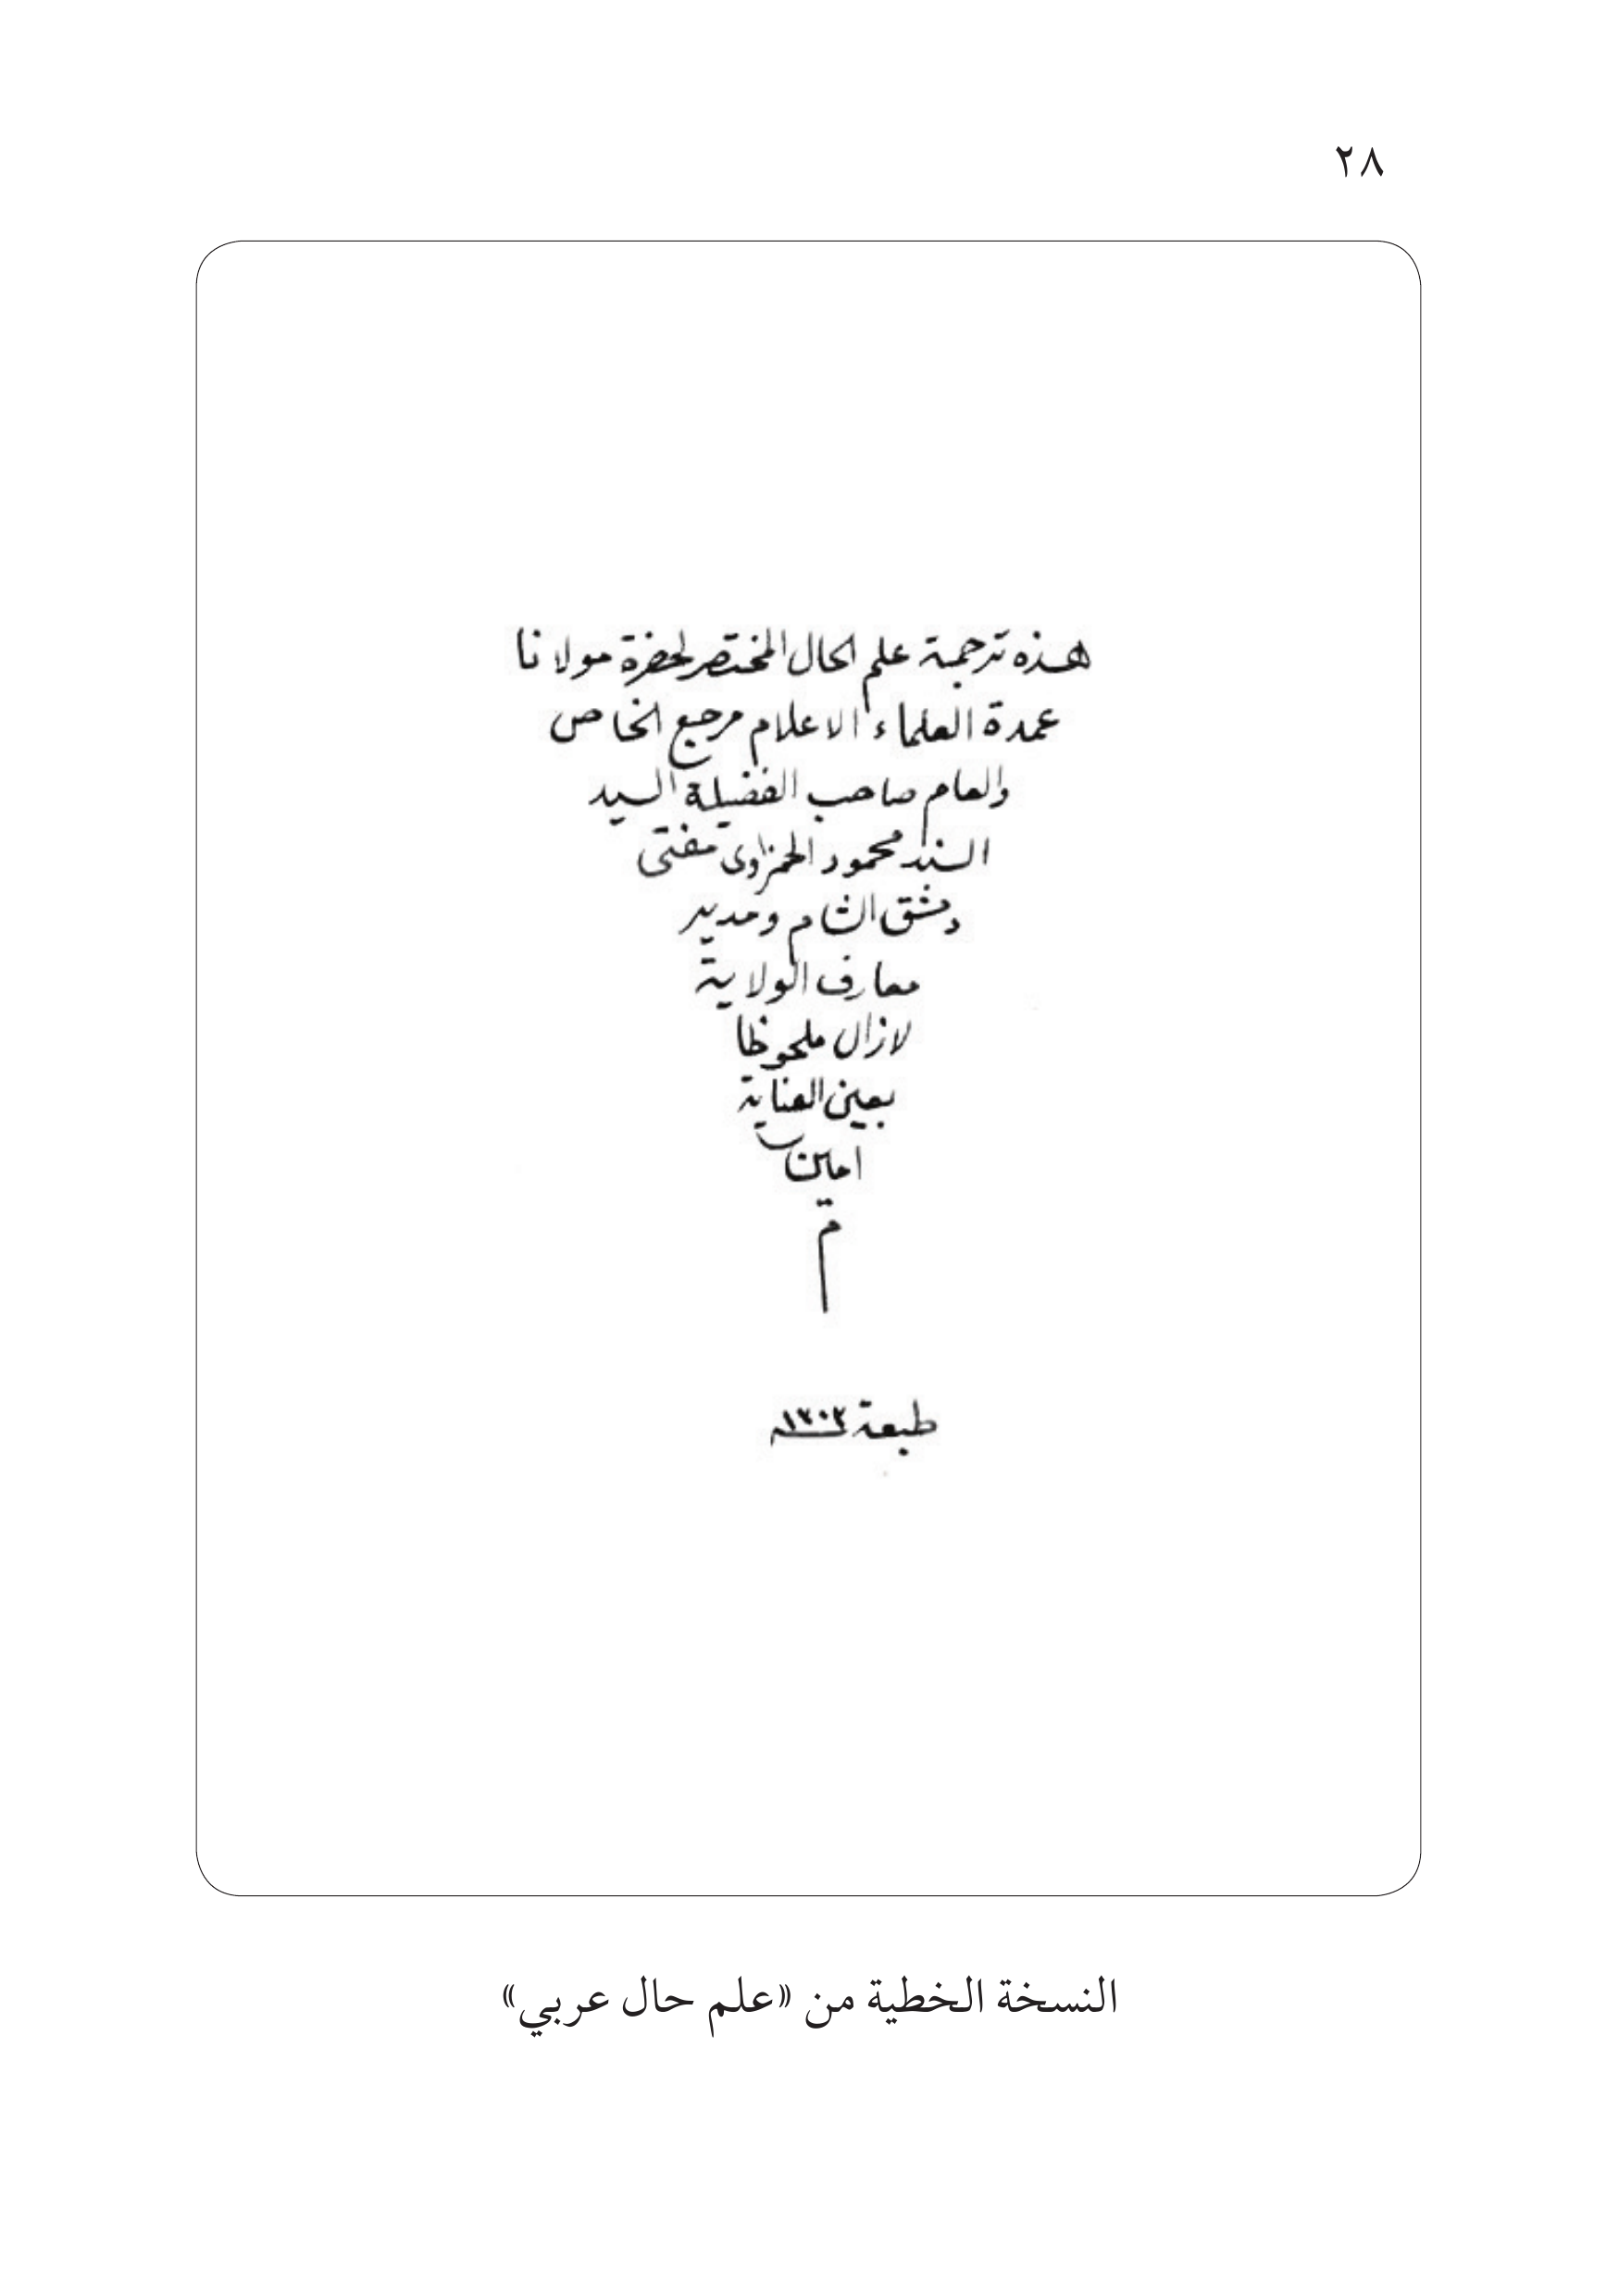 ٢٨
هذه ترجمة علم الحال المختصر لحضرة مولانا
عمدة العلماء الاعلام مرجع الخاص
والعام صاحب الفضيلة السيد
السند محمود الحمزاوى مفتى
دمشق الشام ومدير
معارف الولاية
لازال ملحوظا
بعين العناية
امين
م
طبعة ١٣٠٣
النسخة الخطية من «علم حال عربي»